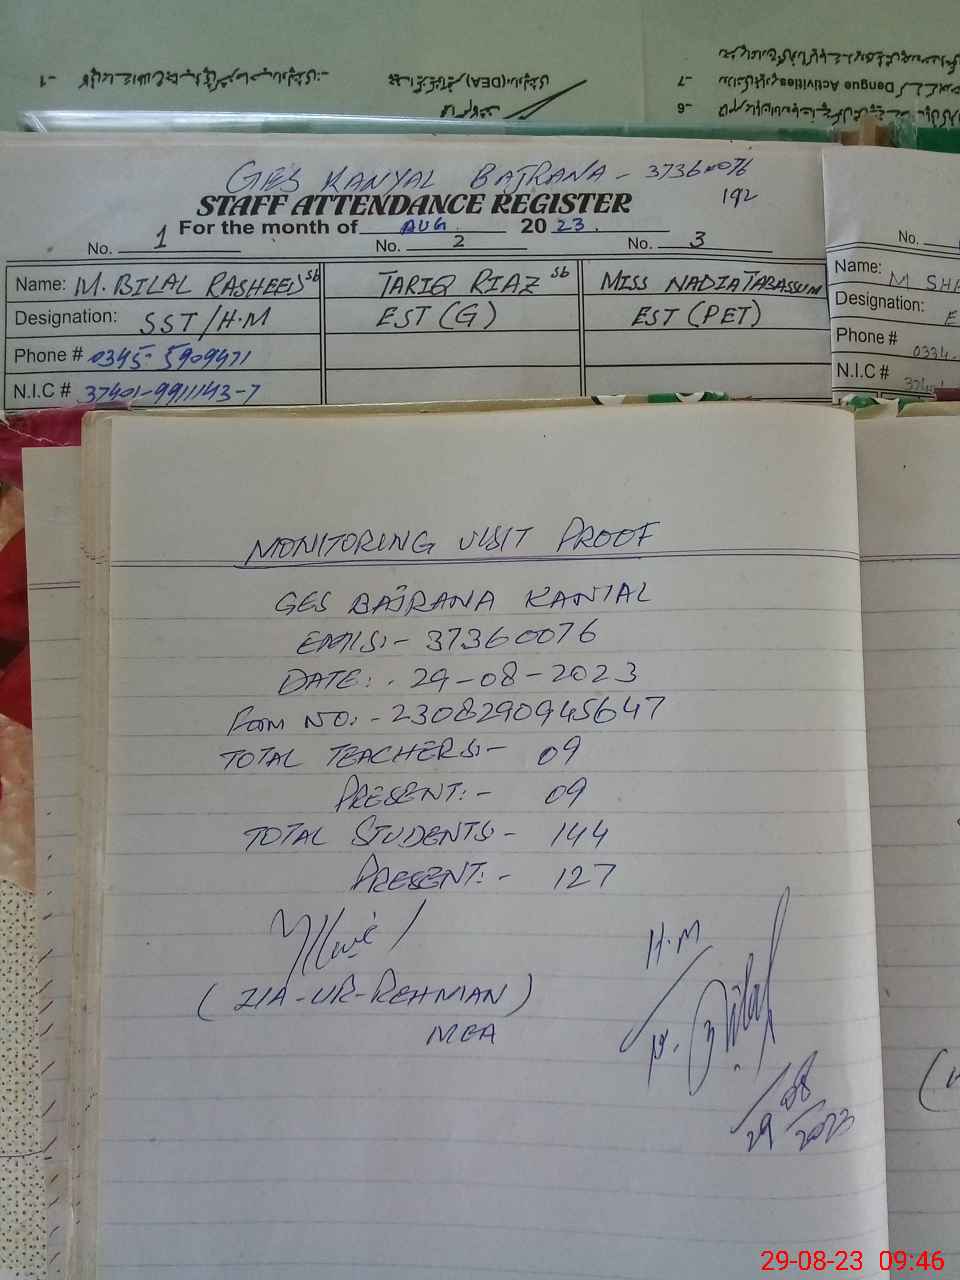 Dengue Activities
(DEA)
GES KANYAL BAJRANA - 37360076
192
STAFF ATTENDANCE REGISTER
For the month of AUG. 2023.
No. 1 No. 2 No. 3 No.
Name: M. BILAL RASHEED sb TARIQ RIAZ sb MISS NADIA TABASSUM Name: M SHA
Designation: SST/H.M EST (G) EST (PET) Designation: E
Phone # 0345-5909471 Phone # 0334-
N.I.C # 37401-9911143-7 N.I.C #
MONITORING VISIT PROOF
GES BAJRANA KANYAL
EMIS:- 37360076
DATE:. 29-08-2023
Form NO:- 2308290945647
TOTAL TEACHERS:- 09
PRESENT:- 09
TOTAL STUDENTS:- 144
PRESENT:- 127
(ZIA-UR-REHMAN)
MEA
H.M
M. Bilal
29/08/2023
29-08-23 09:46